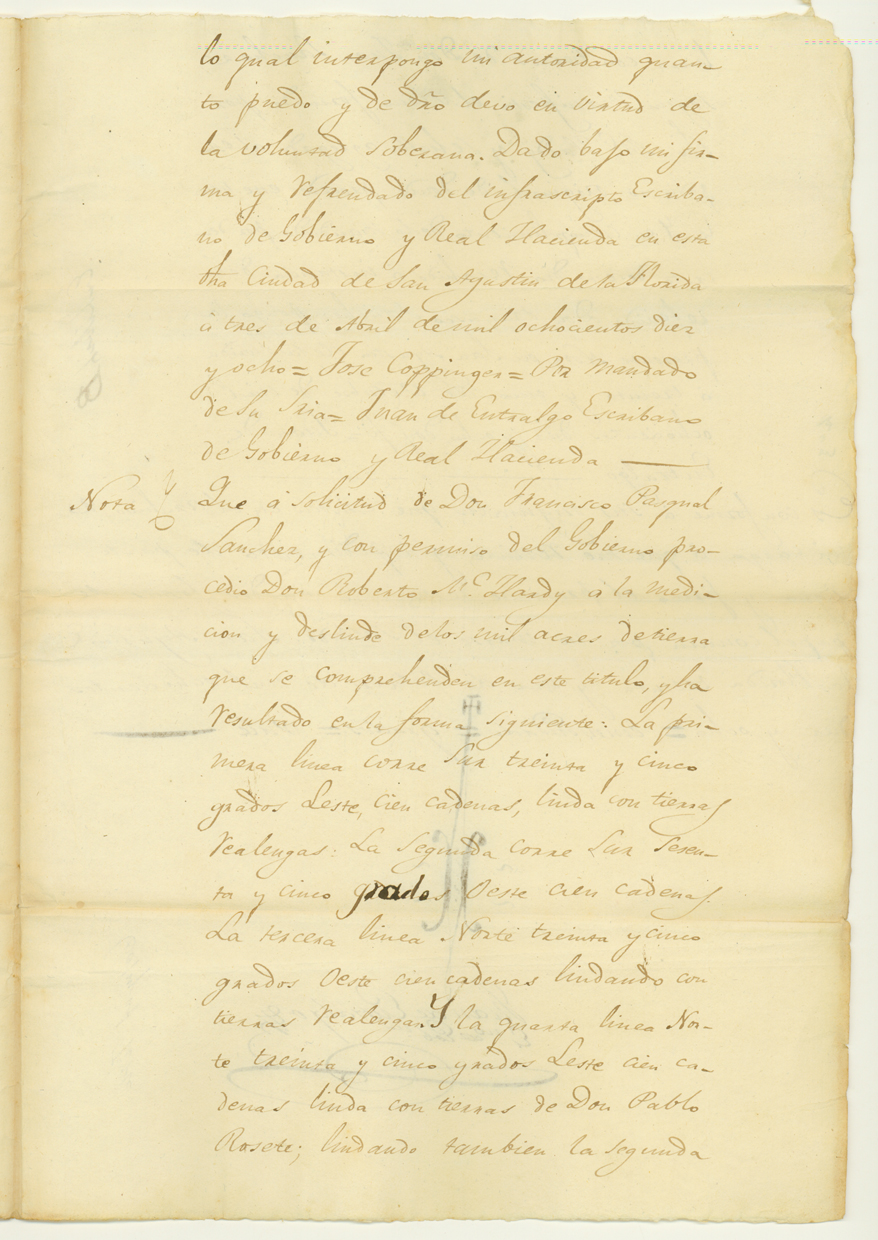 lo qual interpongo mi autoridad quan-
to puedo y de dro devo en virtud de
la voluntad soberana. Dado bajo mi fir-
ma y refrendado del infrascripto Escriba-
no de Gobierno y Real Hacienda en esta
dha Ciudad de San Agustin de la Florida
à tres de Abril de mil ochocientos diez
y ocho = Jose Coppinger = Por mandado
de su Sria = Juan de Entralgo Escribano
de Gobierno y Real Hacienda —
Nota Que à solicitud de Don Francisco Pasqual
Sanchez, y con permiso del Gobierno pro-
cedio Don Roberto Mc. Hardy à la medi-
cion y deslinde de los mil acres de tierra
que se comprehenden en este titulo, y ha
resultado en la forma siguiente: La pri-
mera linea corre Sur treinta y cinco
grados Leste, cien cadenas, linda con tierras
realengas: La segunda corre Sur sesen-
ta y cinco grados Oeste cien cadenas.
La tercera linea Norte treinta y cinco
grados Oeste cien cadenas lindando con
tierras realengas. Y la quarta linea Nor-
te treinta y cinco grados Leste cien ca-
denas linda con tierras de Don Pablo
Rosete; lindando tambien la segunda